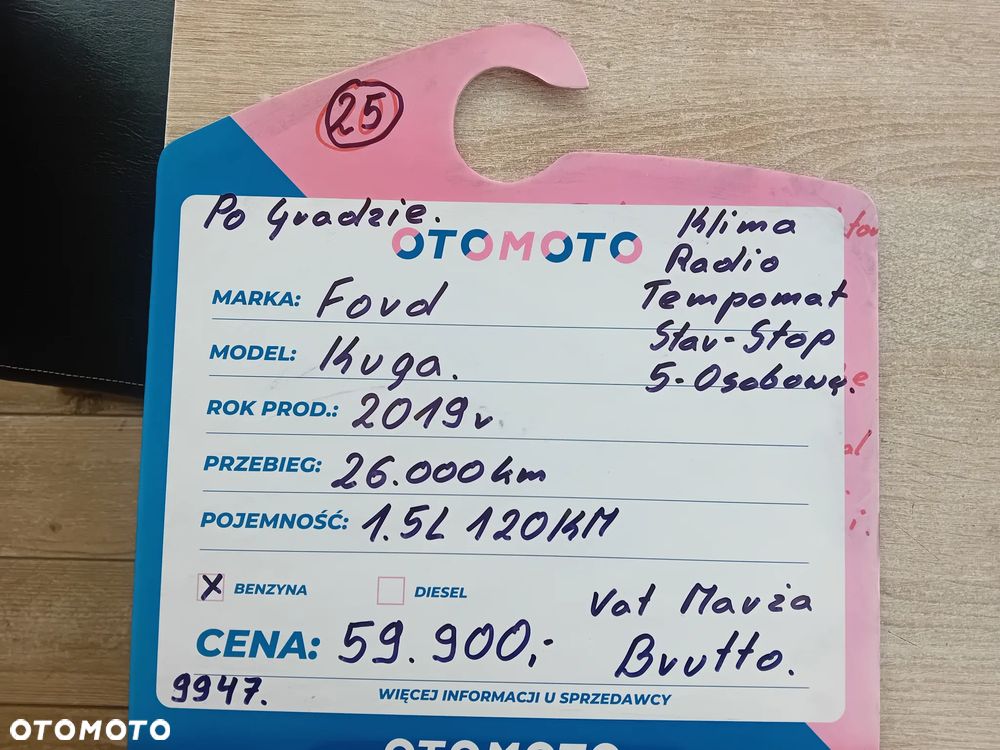 25
Po Gradzie.
OTOMOTO
Klima
Radio
Tempomat
Star-Stop
5-Osobowy.
MARKA: Ford
MODEL: Kuga.
ROK PROD.: 2019r.
PRZEBIEG: 26.000km
POJEMNOŚĆ: 1.5L 120KM
X BENZYNA DIESEL
Vat Marża
Brutto.
CENA: 59.900,-
9947.
WIĘCEJ INFORMACJI U SPRZEDAWCY
OTOMOTO
OTOMOTO